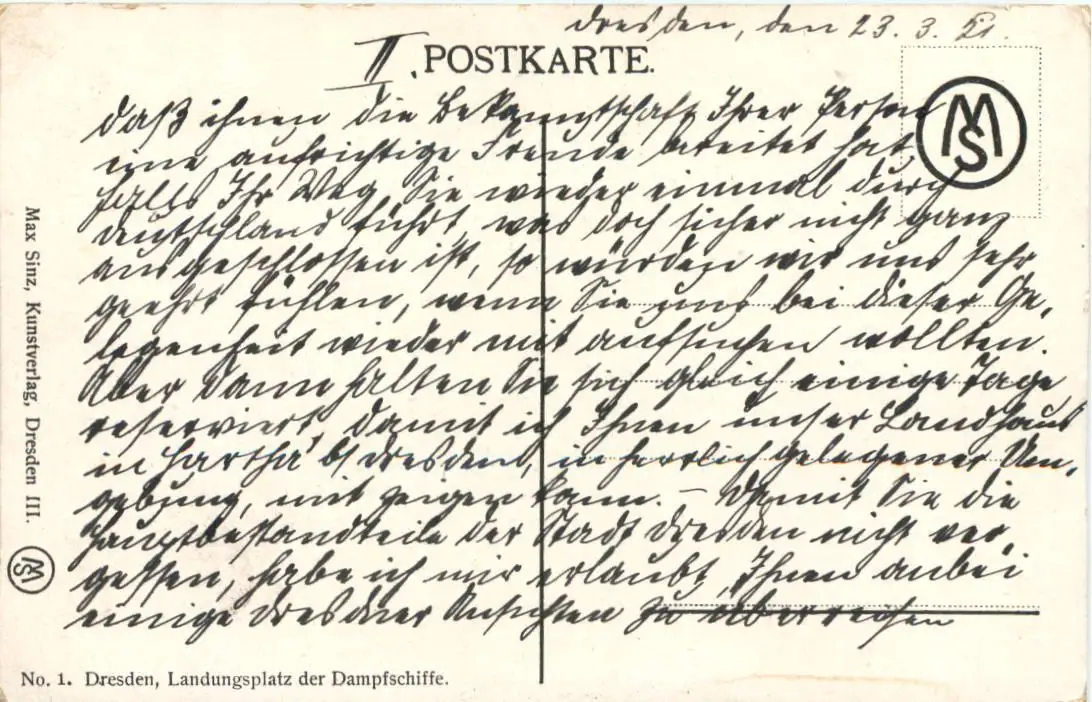 Dresden, den 23. 3. 21.
II. POSTKARTE.
daß ihnen die Bekanntschaft Ihrer Person
eine aufrichtige Freude bereitet hat
falls Ihr Weg Sie wieder einmal durch
Deutschland führt, was doch sicher nicht ganz
ausgeschlossen ist, so würden wir uns sehr
geehrt fühlen, wenn Sie uns bei dieser Ge-
legenheit wieder mit aufsuchen wollten.
Aber dann halten Sie sich gleich einige Tage
reserviert, damit ich Ihnen unser Landhaus
in Hartha b/ Dresden, in herrlich gelegener Um-
gebung, mit zeigen kann. – Damit Sie die
Hauptbestandteile der Stadt Dresden nicht ver-
gessen, habe ich mir erlaubt, Ihnen anbei
einige Dresdner Ansichten zu überreichen
MS
Max Sinz, Kunstverlag, Dresden III.
MS
No. 1. Dresden, Landungsplatz der Dampfschiffe.